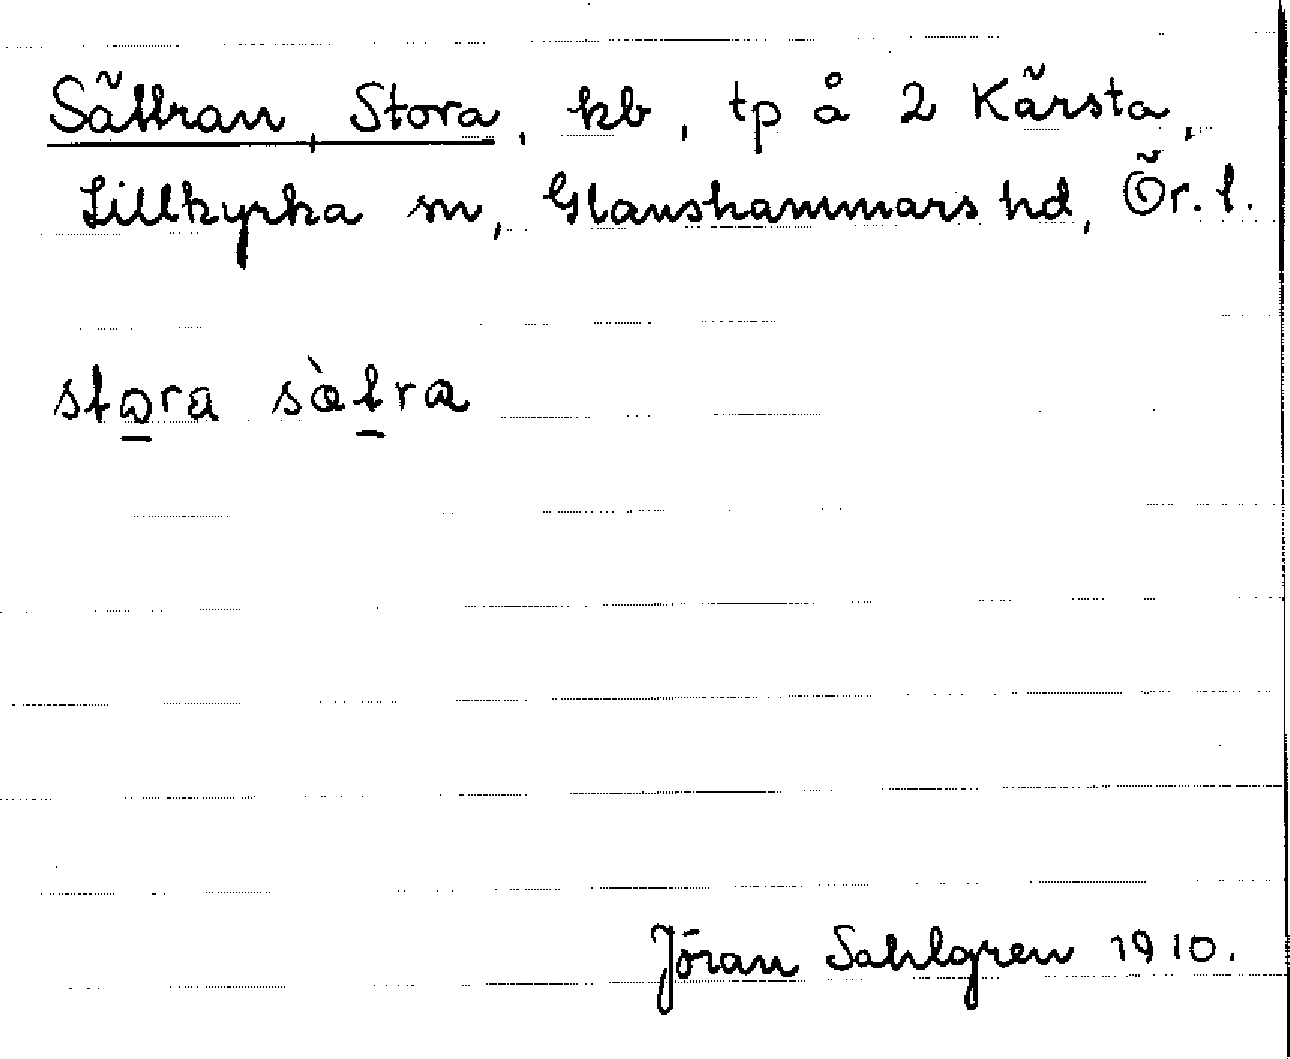 Sättran, Stora, kb, tp å 2 Kärsta,
Lillkyrka sn, Glanshammars hd, Ör. l.
stora sàtra
Jöran Sahlgren 1910.